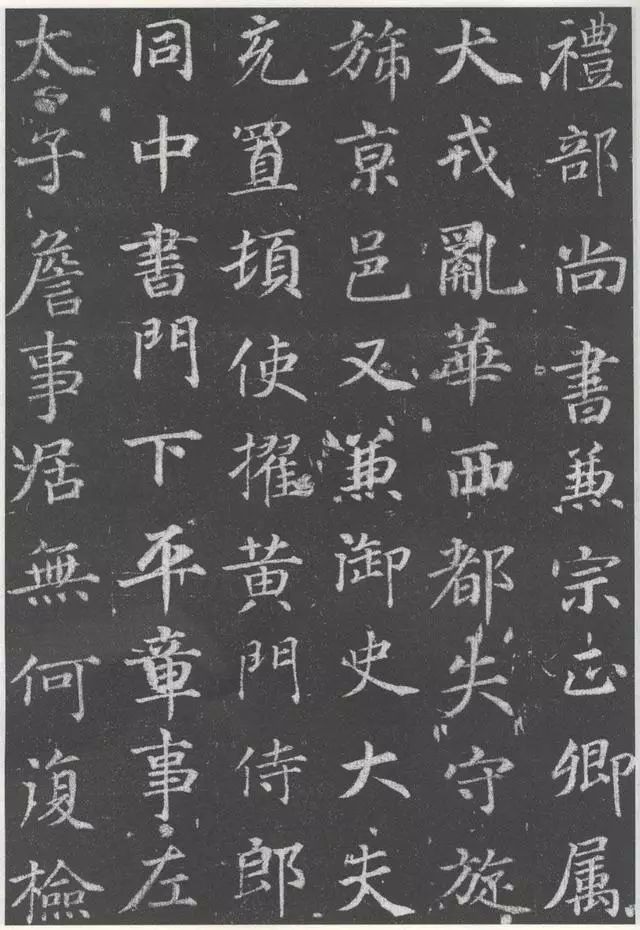 禮部尚書兼宗正卿属
犬戎亂華西都失守旋
斾京邑又兼御史大夫
充置頓使擢黄門侍郎
同中書門下平章事左
太子詹事居無何復檢